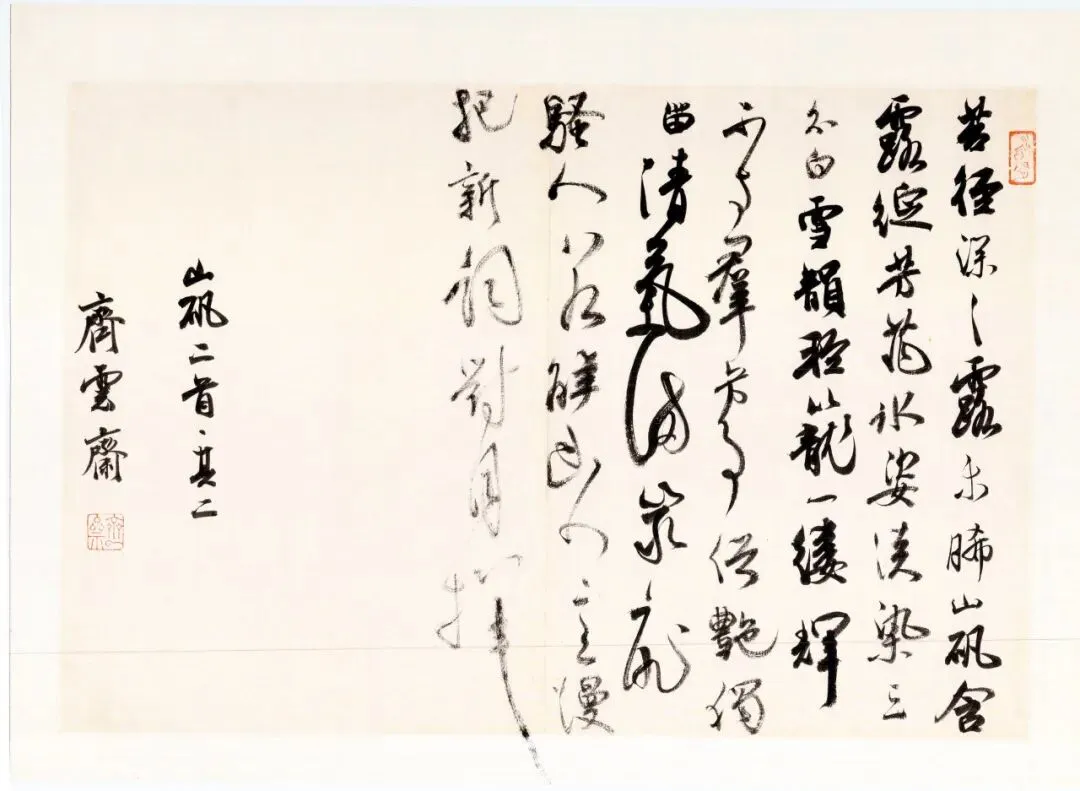 苔徑深深露未晞山矾含
露綻芳菲冰姿淡染三
分白雪韻輕籠一縷輝
不與羣芳爭俗艷獨
留清氣滿巖扉
騷人若解幽人意漫
把新詞對月揮
山矾二首·其二
齊雲齋